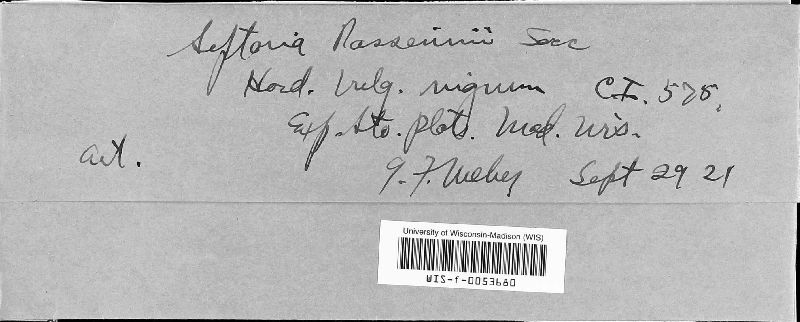 Septoria Passerinii Sacc
Hord. Vulg. nigrum C.I. 575.
Exp. Sta. Plots. Mad. Wis.
art.
G. F. Weber Sept 29 21
University of Wisconsin-Madison (WIS)
WIS-f-0053680